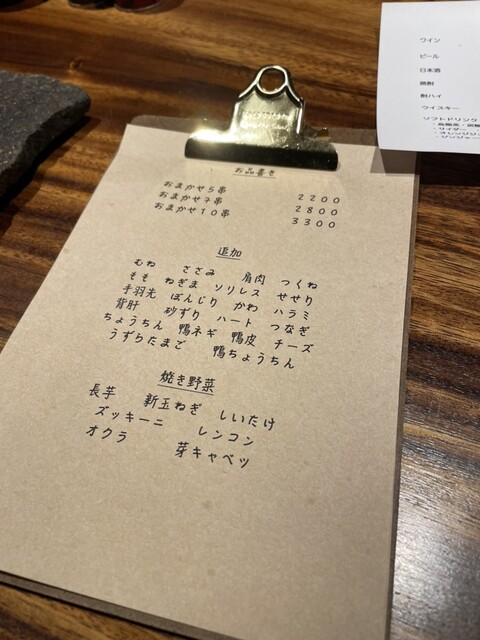 お品書き
おまかせ5串 2200
おまかせ7串 2800
おまかせ10串 3300
追加
むね ささみ 肩肉 つくね
そそ ねぎま ソリレス せせり
手羽先 ぼんじり かわ ハラミ
背肝 砂ずり ハート つなぎ
ちょうちん 鴨ネギ 鴨皮 チーズ
うずらたまご 鴨ちょうちん
焼き野菜
長芋 新玉ねぎ しいたけ
ズッキーニ レンコン
オクラ 芽キャベツ
ワイン
ビール
日本酒
焼酎
酎ハイ
ウイスキー
ソフトドリンク